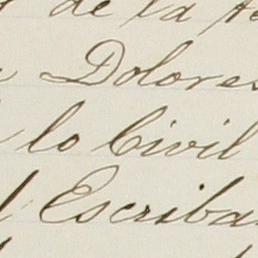 de la
Dolores
lo Civil
Escriba